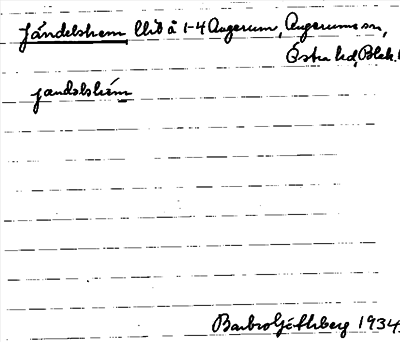 Jändelshem llið å 1-4 Augerum, Augerums sn,
Östra hd, Blek.
jandəlshém
Barbro Götlberg 1934.